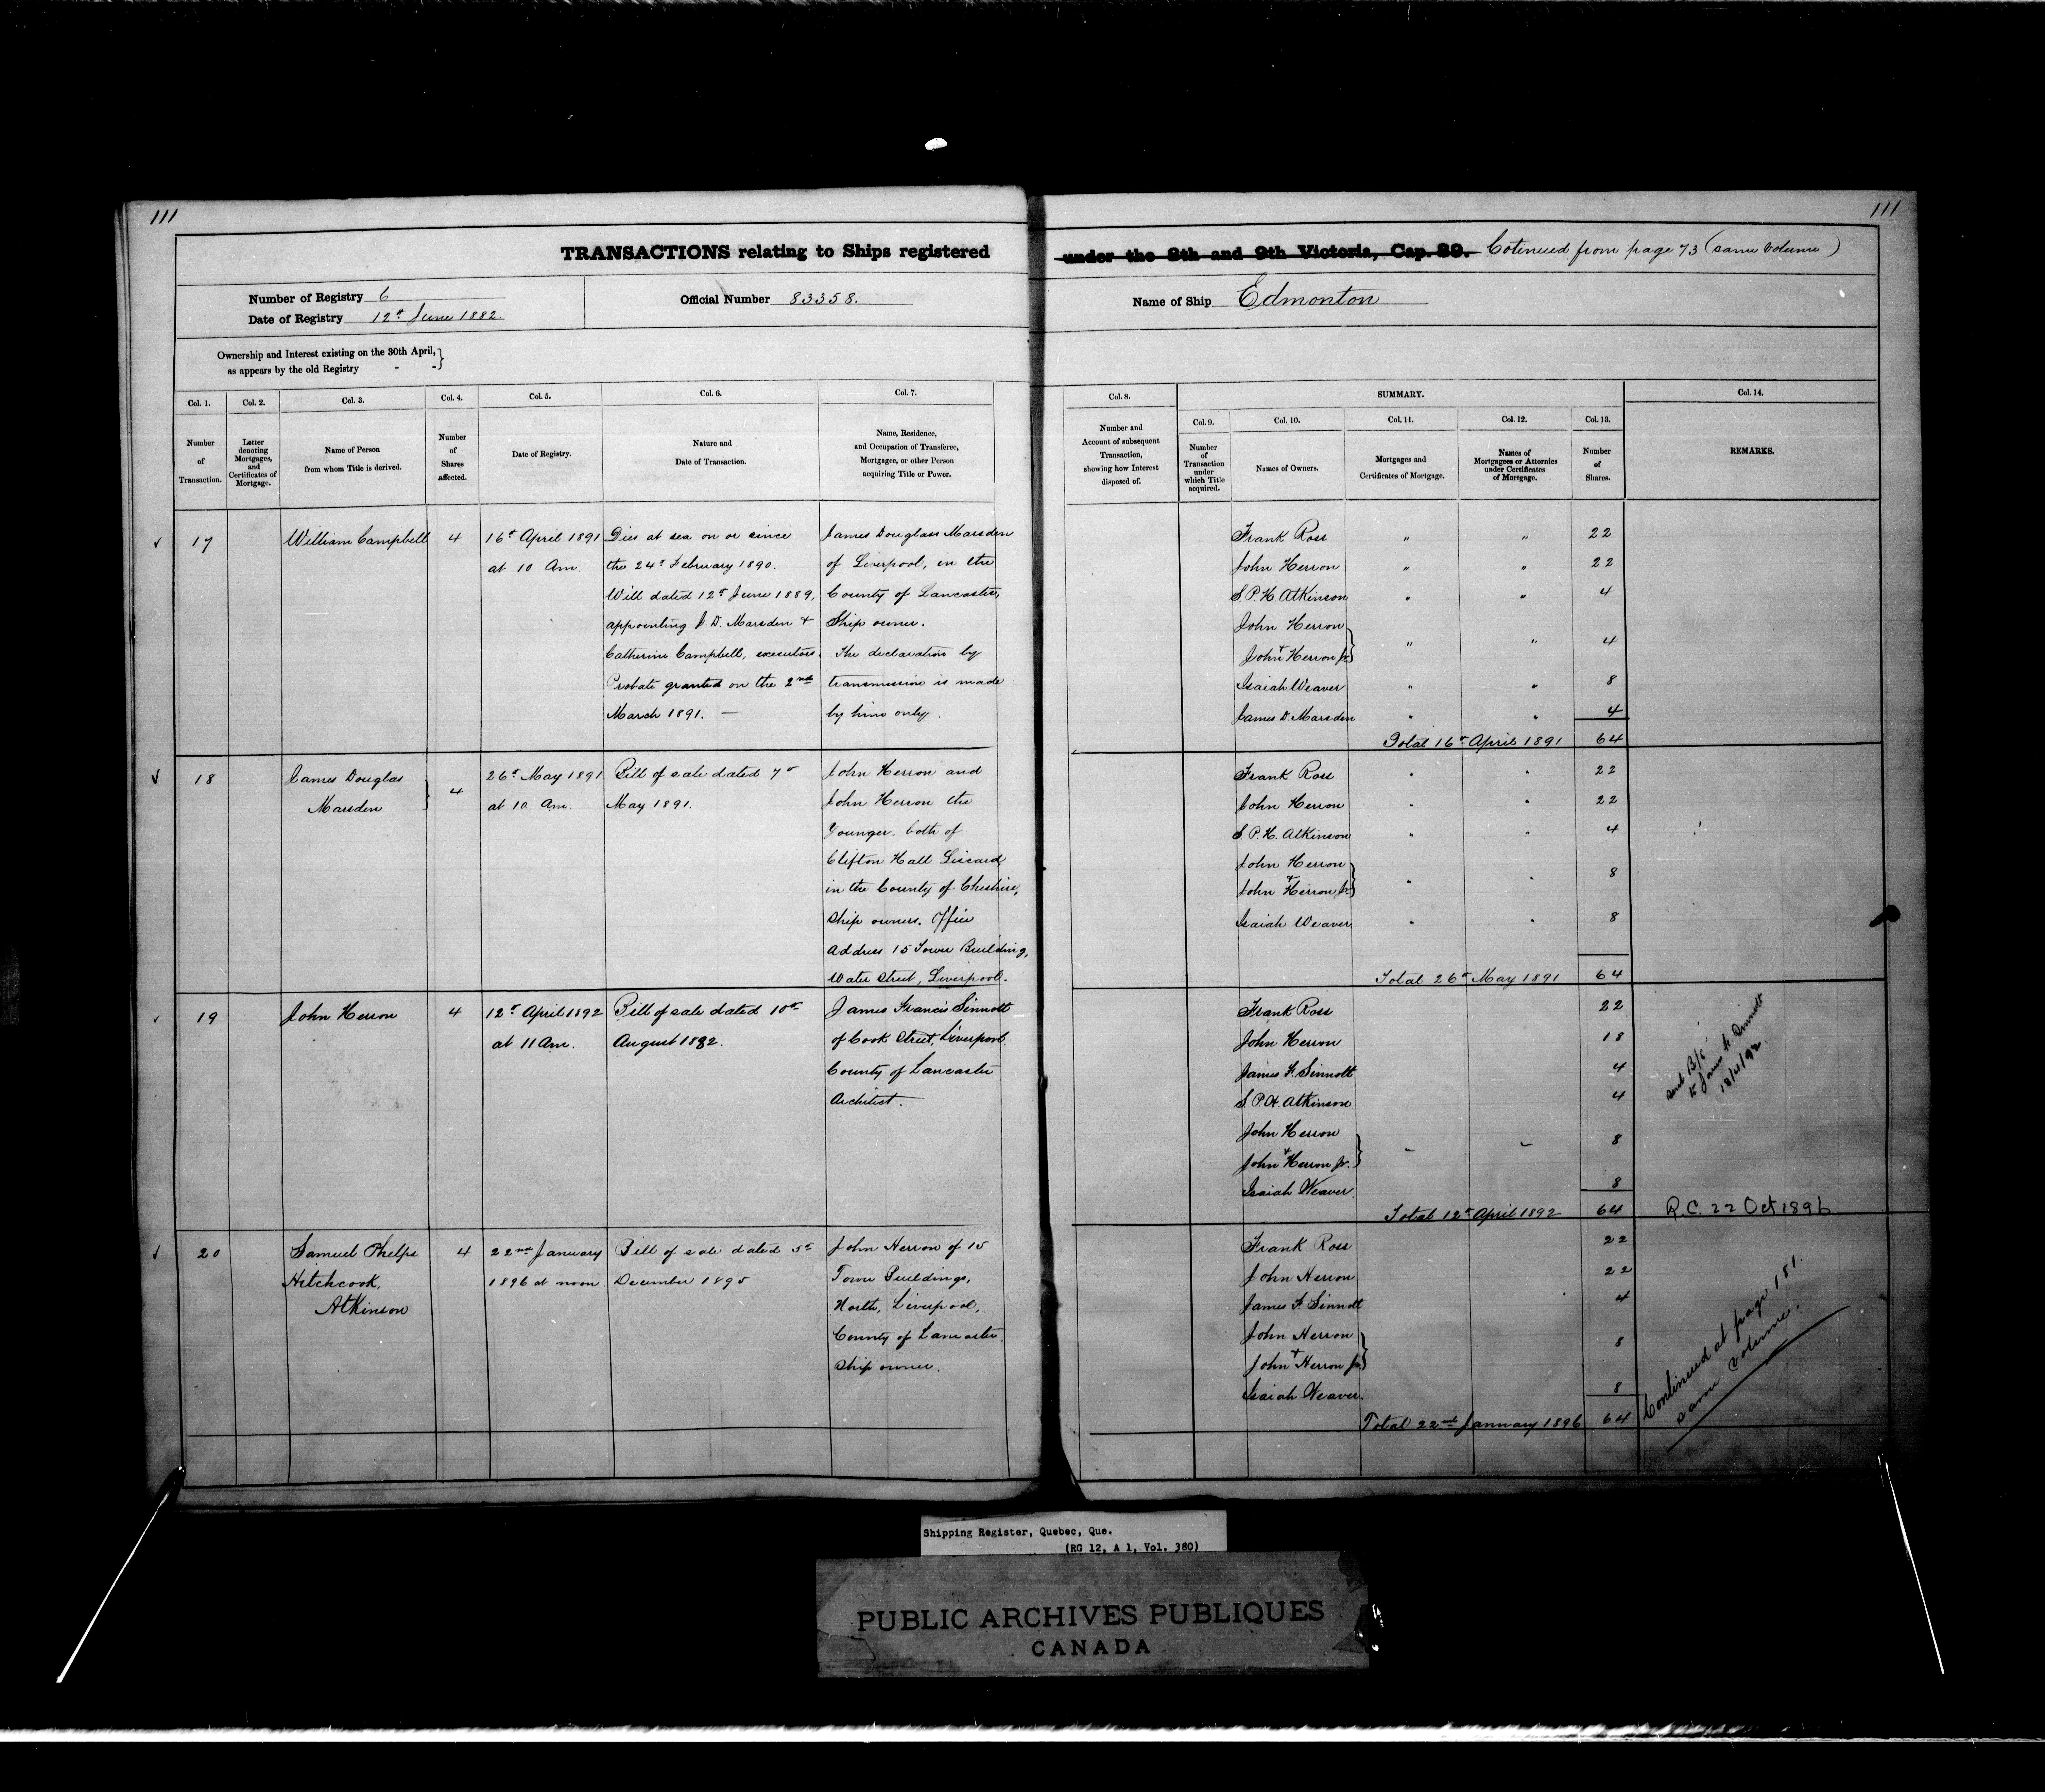 111
111
TRANSACTIONS relating to Ships registered under the 8th and 9th Victoria, Cap. 89. Cotinued from page 73 (same volume)
Number of Registry 6
Date of Registry 12th June 1882
Official Number 83358.
Name of Ship Edmonton
Ownership and Interest existing on the 30th April,
as appears by the old Registry - -
Col. 1.
Number
of
Transaction.
Col. 2.
Letter
denoting
Mortgages,
and
Certificates of
Mortgage.
Col. 3.
Name of Person
from whom Title is derived.
Col. 4.
Number
of
Shares
affected.
Col. 5.
Date of Registry.
Col. 6.
Nature and
Date of Transaction.
Col. 7.
Name, Residence,
and Occupation of Transferee,
Mortgagee, or other Person
acquiring Title or Power.
Col. 8.
Number and
Account of subsequent
Transaction,
showing how Interest
disposed of.
SUMMARY.
Col. 9.
Number
of
Transaction
under
which Title
acquired.
Col. 10.
Names of Owners.
Col. 11.
Mortgages and
Certificates of Mortgage.
Col. 12.
Names of
Mortgagees or Attornies
under Certificates
of Mortgage.
Col. 13.
Number
of
Shares.
Col. 14.
REMARKS.
17
William Campbell
4
16th April 1891
at 10 Am
Dies at sea on or since
the 24th February 1890.
Will dated 12th June 1889,
appointing J. D. Marsden +
Catherine Campbell, executors.
Probate granted on the 2nd
March 1891. —
James Douglass Marsden
of Liverpool, in the
County of Lancaster,
Ship owner.
The declaration by
transmission is made
by him only.
Frank Ross " " 22
John Herron " " 22
S. P. H. Atkinson " " 4
John Herron
+
John Herron Jr. " " 4
Isaiah Weaver " " 8
James D. Marsden " " 4
Total 16th April 1891 64
18
James Douglas
Marsden
4
26th May 1891
at 10 Am.
Bill of sale dated 7th
May 1891.
John Herron and
John Herron the
Younger, both of
Clifton Hall Liscard,
in the County of Cheshire,
Ship owners. Office
Address 15 Tower Building,
Water Street, Liverpool.
Frank Ross " " 22
John Herron " " 22
S. P. H. Atkinson " " 4
John Herron
+
John Herron Jr. " " 8
Isaiah Weaver " " 8
Total 26th May 1891 64
19
John Herron
4
12th April 1892
at 11 Am.
Bill of sale dated 10th
August 1882.
James Francis Sinnott
of Cook Street, Liverpool,
County of Lancaster
Architect.
Frank Ross 22
John Herron 18
James F. Sinnott 4
S. P. H. Atkinson 4
John Herron
+
John Herron Jr. " " 8
Isaiah Weaver 8
Total 12th April 1892 64
sent B/S
to James F. Sinnott
12/4/92.
R.C. 22 Oct 1896
20
Samuel Phelps
Hitchcook,
Atkinson
4
22nd January
1896 at noon
Bill of sale dated 5th
December 1895
John Herron of 15
Tower Buildings,
North, Liverpool,
County of Lancaster
Ship owner.
Frank Ross 22
John Herron 22
James F. Sinnott 4
John Herron
+
John Herron Jr. 8
Isaiah Weaver 8
Total 22nd January 1896 64
Continued at page 181.
same volume.
Shipping Register, Quebec, Que.
(RG 12, A 1, Vol. 380)
PUBLIC ARCHIVES PUBLIQUES
CANADA